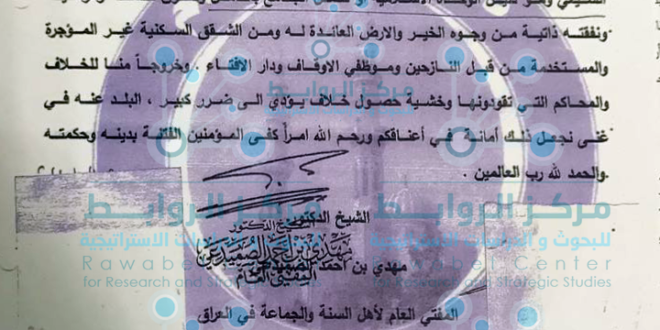 ونفقته ذاتية من وجوه الخير والارض العائدة له ومن الشقق السكنية غير المؤجرة
والمستخدمة من قبل النازحين وموظفي الاوقاف ودار الافتاء ، وخروجاً منا للخلاف
والمحاكم التي تقودونها وخشية حصول خلاف يؤدي الى ضرر كبير ، البلد عنه في
غنى نجعل ذلك أمانة في أعناقكم ورحم الله امرأ كفى المؤمنين الفتنة بدينه وحكمته
والحمد لله رب العالمين .
الشيخ الدكتور
مهدي بن احمد الصميدعي
المفتي العام لأهل السنة والجماعة في العراق
مركز الروابط
مركز الروابط
للبحوث و الدراسات الاستراتيجية
Rawabet Center
for Research and Strategic Studies
مركز الروابط
للبحوث و الدراسات الاستراتيجية
Rawabet Center
for Research and Strategic Studies